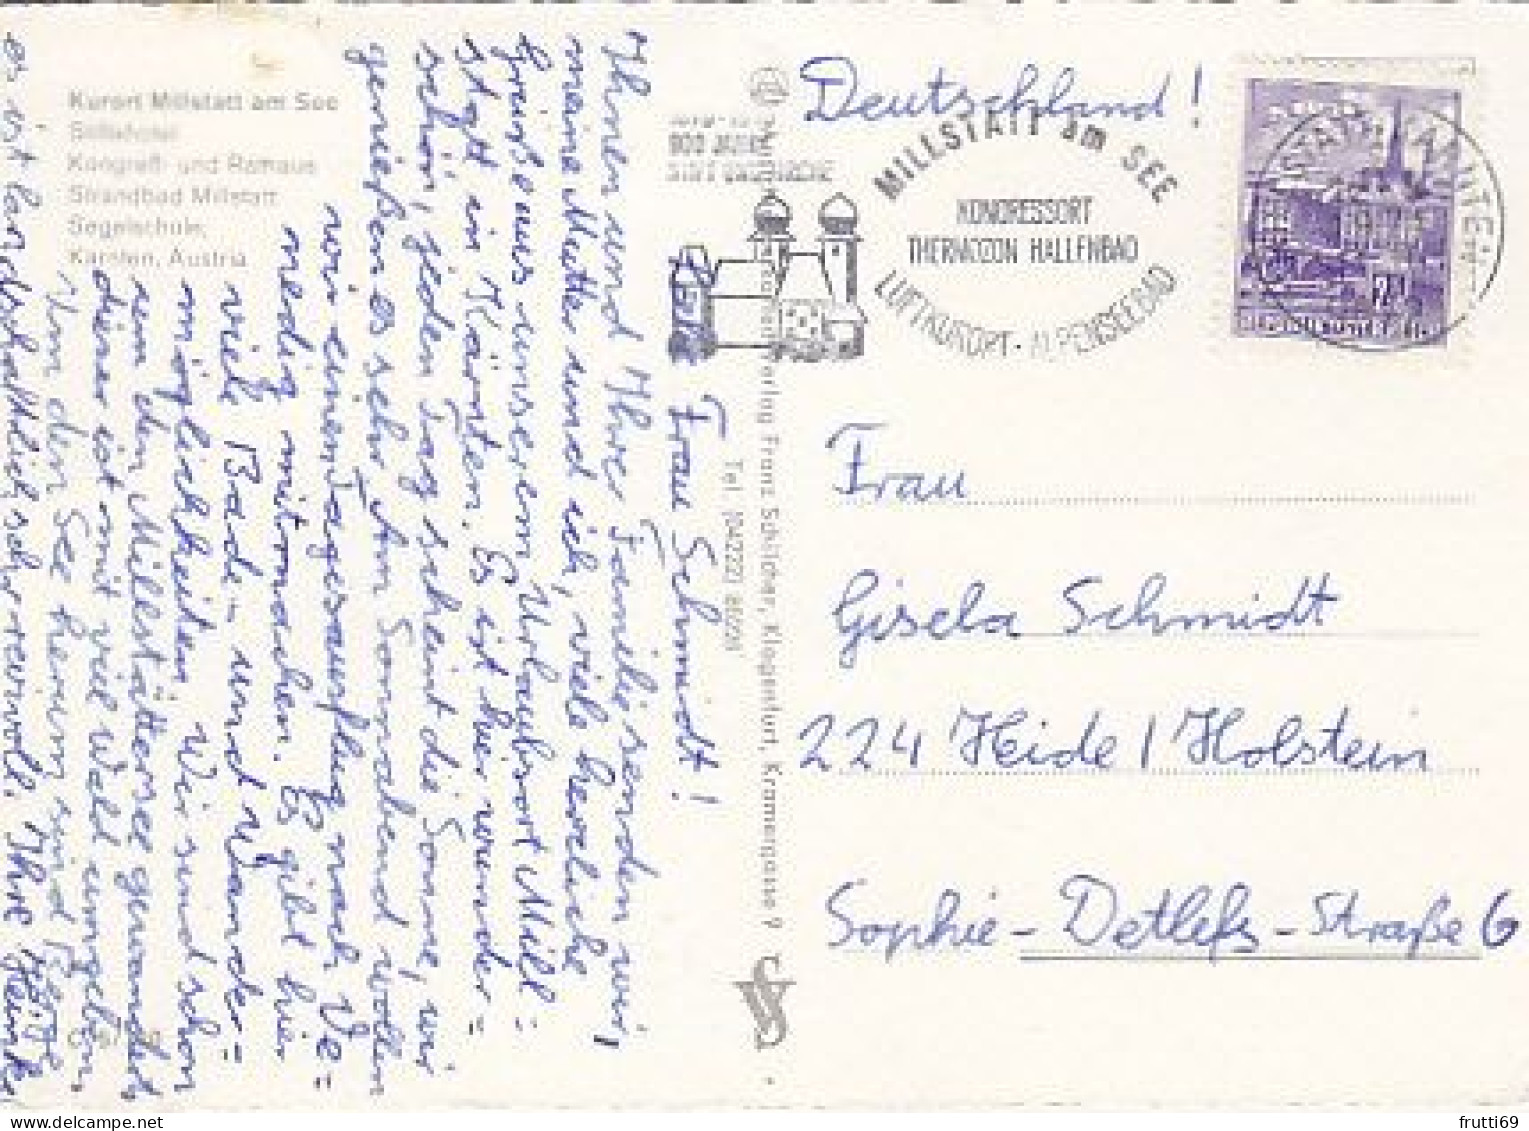 Kurort Millstatt am See
Stiftshotel
Kongreß- und Rathaus
Strandbad Millstatt
Segelschule
Kärnten, Austria
Liebe Frau Schmidt!
Ihnen und Ihrer Familie senden wir,
meine Mutter und ich, viele herzliche
Grüße aus unserem Urlaubsort Mill=
statt in Kärnten. Es ist hier wunder=
schön, jeden Tag scheint die Sonne, wir
genießen es sehr. Am Sonnabend wollen
wir einen Tagesausflug nach Ve=
nedig mitmachen. Es gibt hier
viele Bade- und Wander=
möglichkeiten. Wir sind schon
um den Millstättersee gewandert
dieser ist mit viel Wald umgeben,
Um den See herum sind Berge
es ist landschaftlich sehr reizvoll. Ihre
Verlag Franz Schilcher, Klagenfurt, Kramergasse 9
Tel. (04222)
900 JAHRE
STIFTSKIRCHE
MILLSTATT am SEE
KONGRESSORT
THERMOZON HALLENBAD
LUFTKURORT - ALPENSEEBAD
Deutschland!
Frau
Gisela Schmidt
224 Heide / Holstein
Sophie-Detlefs-Straße 6
frutti69